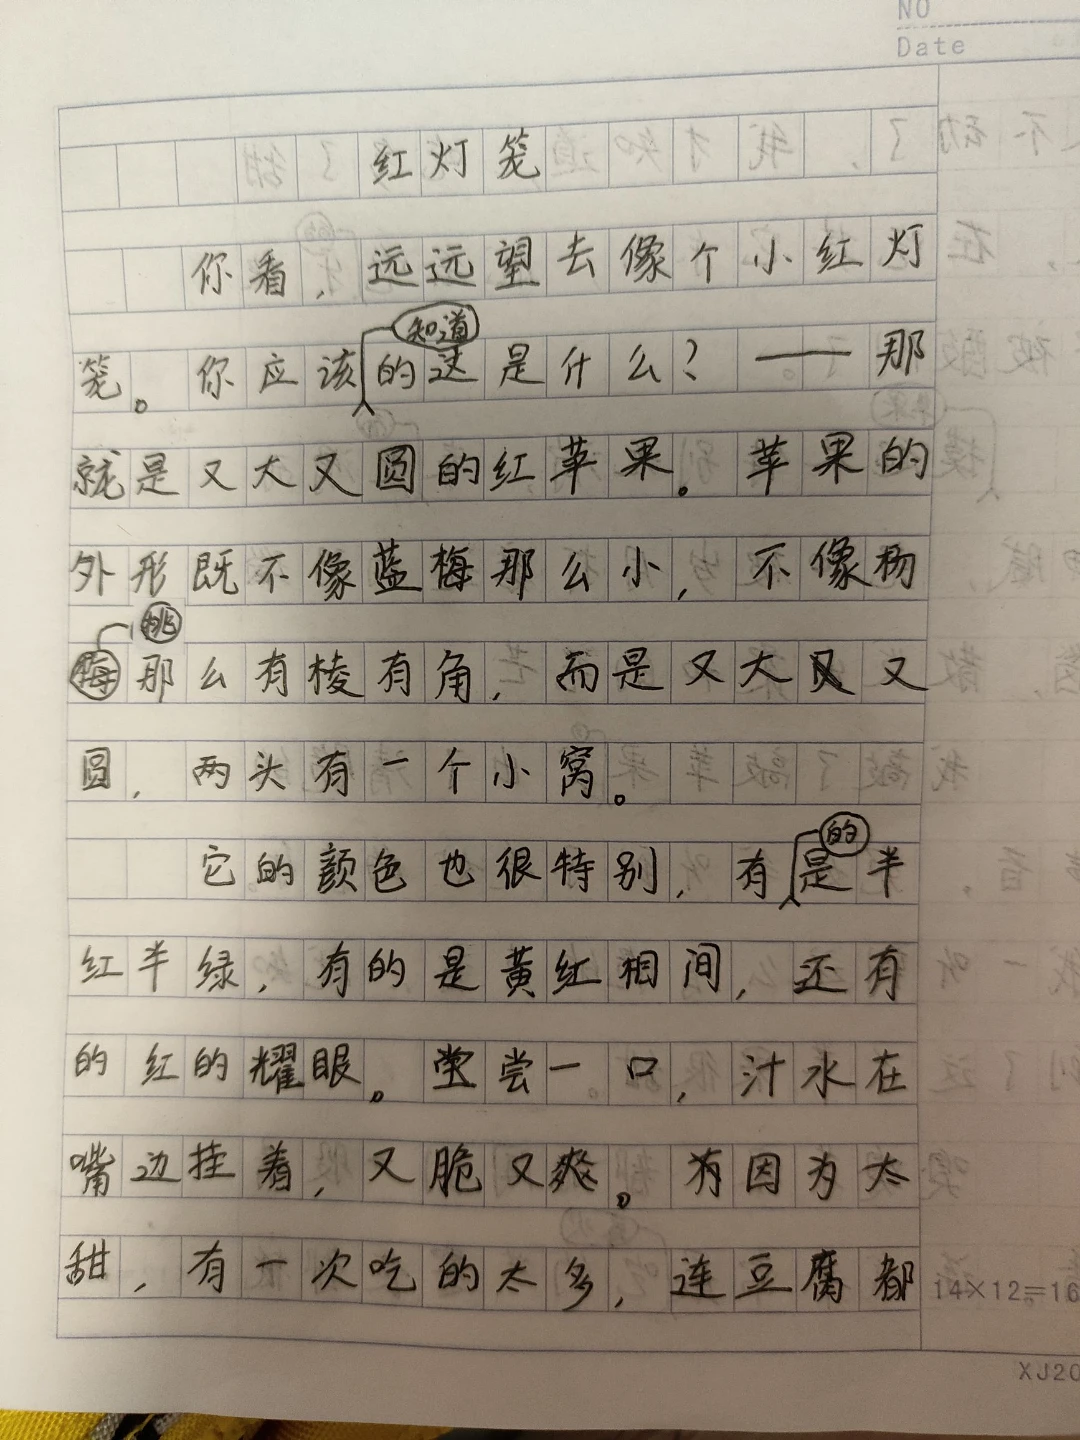 NO
Date
红灯笼
你看，远远望去像个小红灯
知道
笼。你应该的这是什么？——那
就是又大又圆的红苹果。苹果的
外形既不像蓝莓那么小，不像杨
桃
梅那么有棱有角，而是又大又又
圆，两头有一个小窝。
的
它的颜色也很特别，有是半
红半绿，有的是黄红相间，还有
的红的耀眼。尝尝一口，汁水在
嘴边挂着，又脆又爽。有因为太
甜，有一次吃的太多，连豆腐都
14×12=16
XJ20